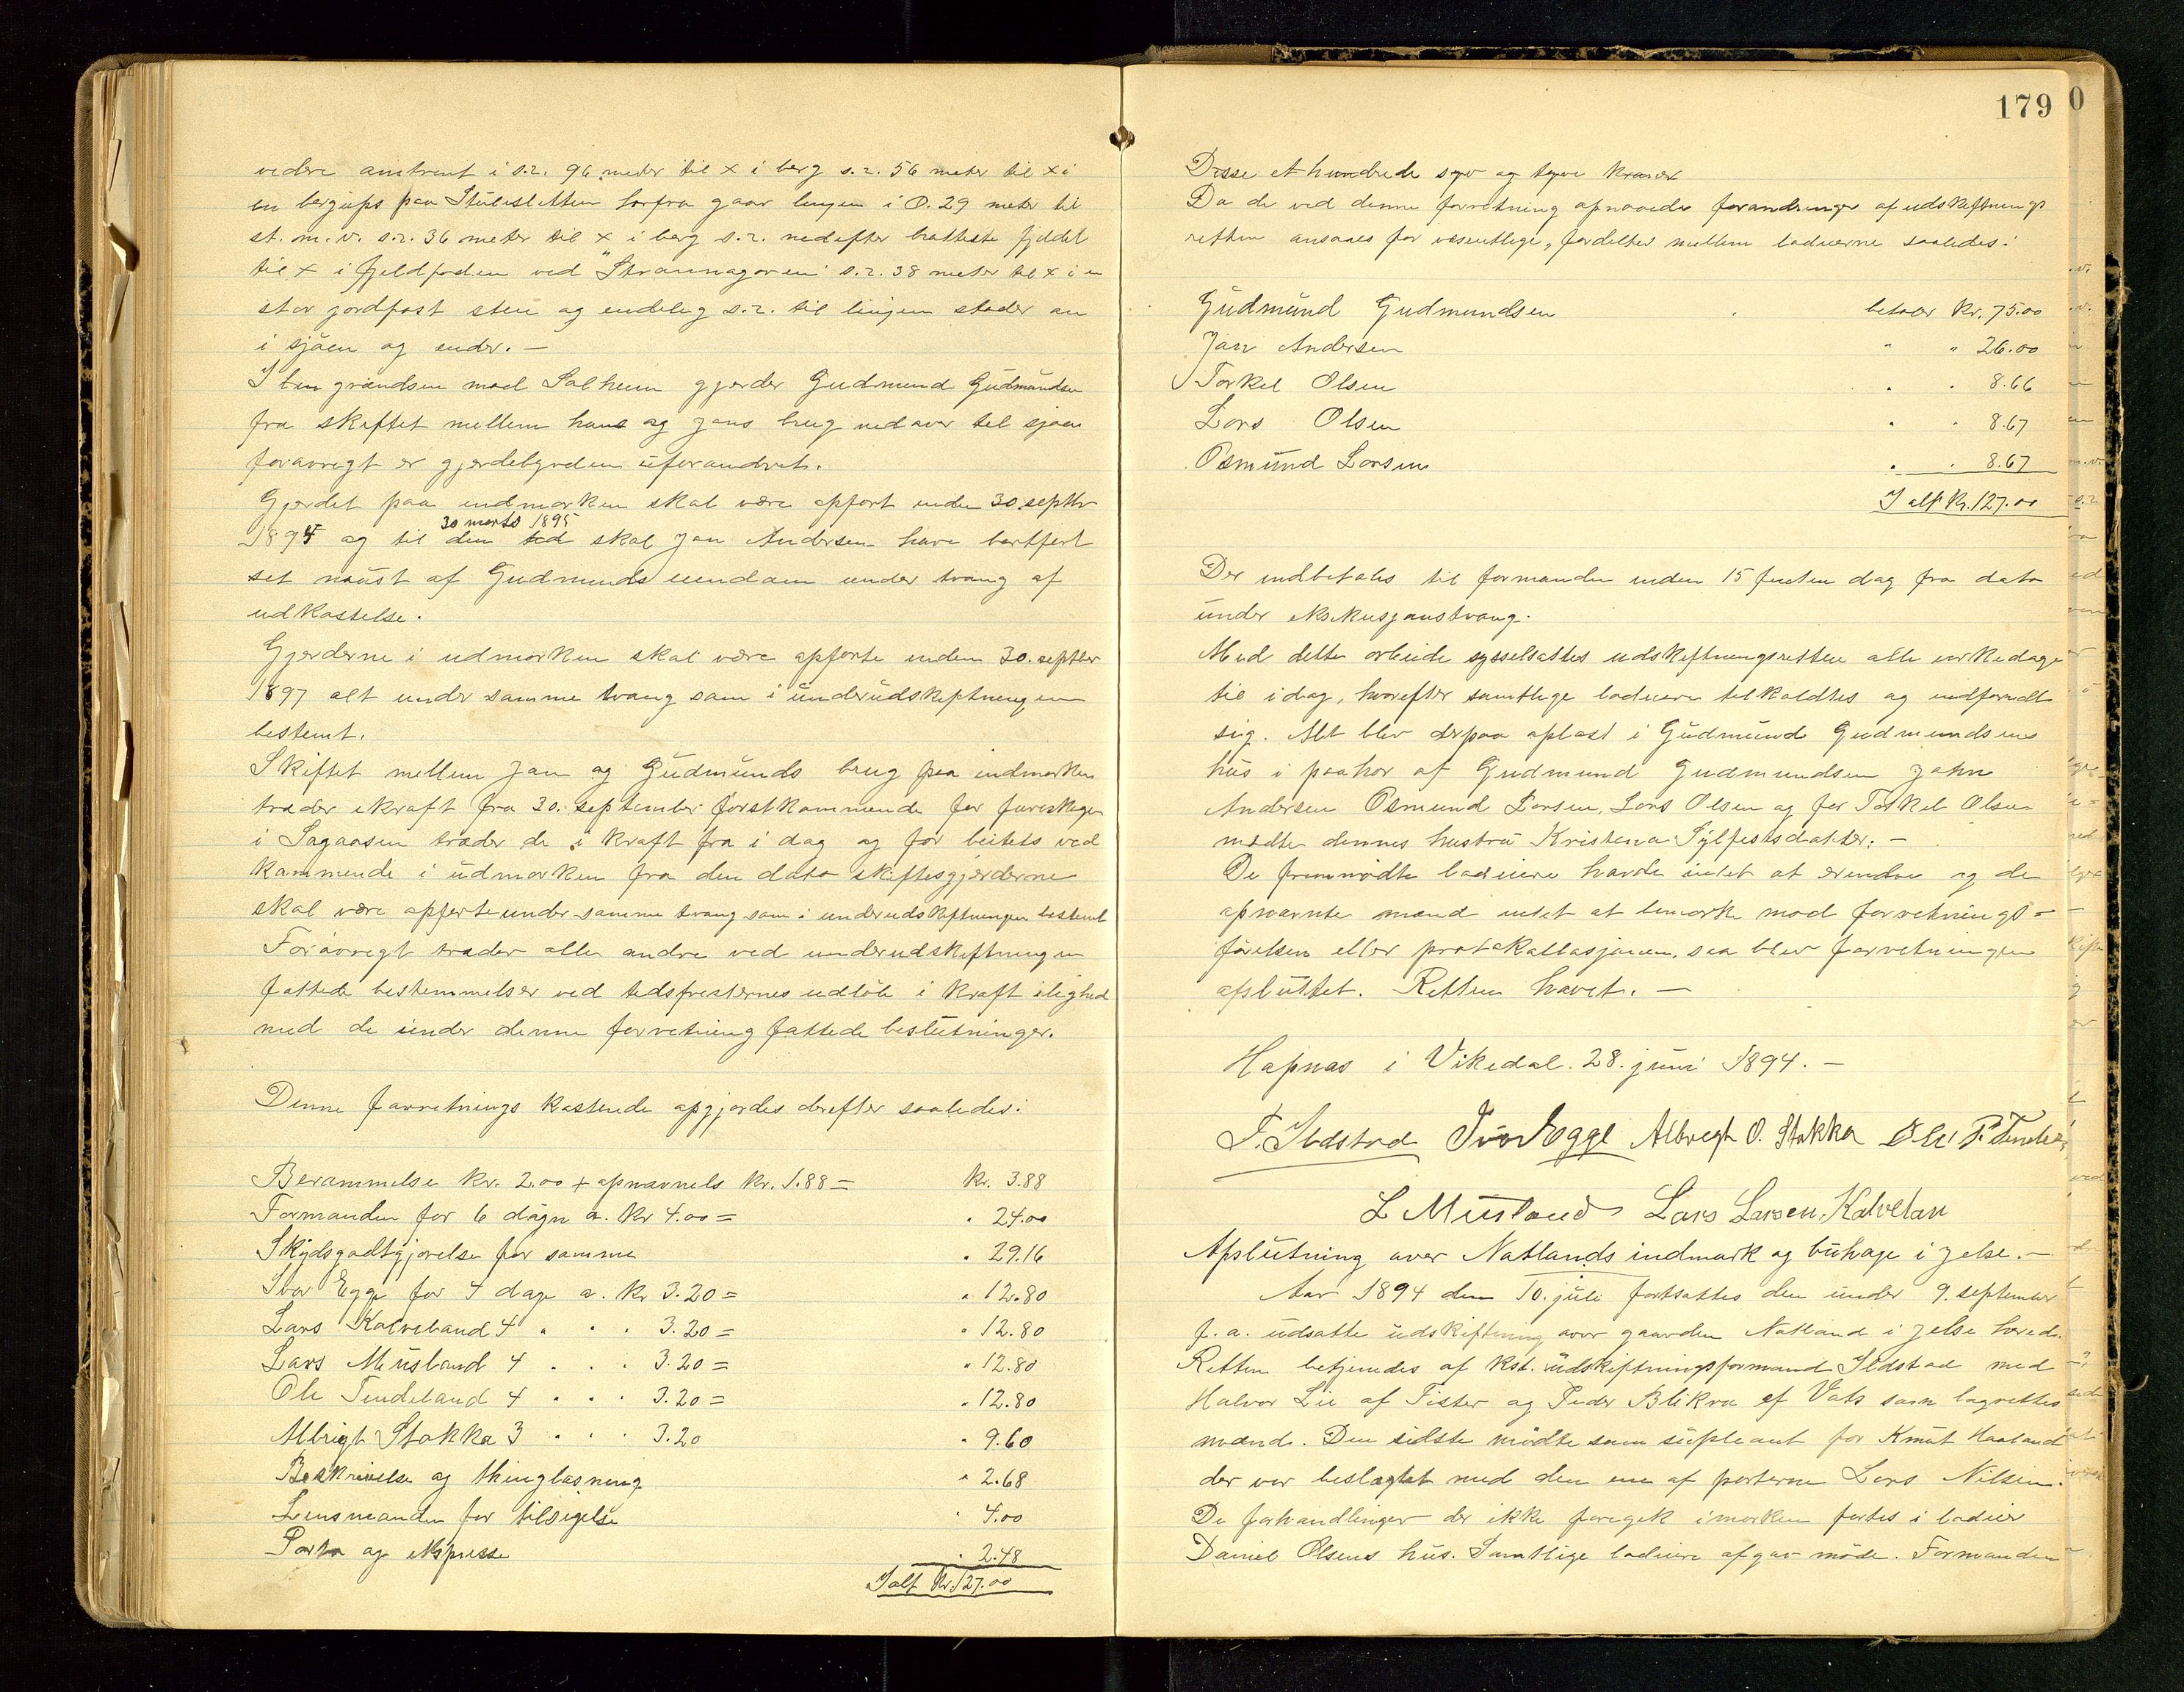 videre omtrent i s.r. 96 meter til x i berg s.r. 56 meter til x i
en bergips paa Stølesletten herfra gaar linjen i O. 29 meter til
st. m. v. s.r. 36 meter til x i berg s.r. nedefter bratteste fjeldet
til x i fjeldfoden ved "Straumagaren" s.r. 38 meter til x i en
stor jordfast sten og endelig s.r. til linjen støder an
i sjøen og ender. —
I grændsen mod Solheim gjerder Gudmund Gudmundsen
fra skiftet mellem hans og Jans brug nedover til sjøen
forøvrigt er gjerdebyrden uforandret.
Gjerdet paa indmarken skal være opført inden 30. septbr
30 marts 1895
1894 og til den tid skal Jan Andersen have bortført
set nøust af Gudmunds eiendom under tvang af
udkastelse.
Gjerderne i udmarken skal være opførte inden 30. septbr
1897 alt under samme tvang som i underudskiftningen
bestemt.
Skiftet mellem Jan og Gudmunds brug paa indmarken
træder ikraft fra 30. september førstkommende for furuskogen
i Sagaasen træder de i kraft fra i dag og for beitets ved
kommende i udmarken fra den dato skiftesgjerderne
skal være opførte under samme tvang som i underudskiftningen bestemt
Forøvrigt træder alle andre ved underudskiftningen
fattede bestemmelser ved tidsfristernes udløb i kraft ilighed
med de under denne forretning fattede beslutninger.
Denne forretnings kostende opgjordes derefter saaledes:
Berammelse kr. 2.00 + opnævnels kr. 1.88 = kr. 3.88
Formanden for 6 døgn a. kr 4.00 = " 24.00
Skydsgodtgjørelse for samme " 29.16
Ivar Egge for 4 dage a. kr 3.20 = " 12.80
Lars Kalveland 4 " " " 3.20 = " 12.80
Lars Musland 4 " " " 3.20 = " 12.80
Ole Tindeland 4 " " " 3.20 = " 12.80
Albrigt Stakka 3 " " " 3.20 " 9.60
Beskrivelse og thinglæsning " 2.68
Lensmanden for tilsigelse " 4.00
Porto og ekspresse " 2.48
Ialt kr. 127.00
179
Disse et hundrede syv og tyve kroner
Da de ved denne forretning opnaaede forandringer af udskiftnings
retten ansaaes for væsentlige, fordeltes mellem lodeierne saaledes:
Gudmund Gudmundsen betaler kr. 75.00
Jan Andersen " " 26.00
Torkel Olsen " " 8.66
Lars Olsen " " 8.67
Osmund Larsen " " 8.67
I alt kr. 127.00
Der indbetales til formanden inden 15 femten dag fra dato
under eksekusjonstvang.
Med dette arbeide sysselsattes udskiftningsretten alle virkedage
til idag, hvorefter samtlige lodeiere tilkaldtes og indfandt
sig. Alt blev derpaa oplæst i Gudmund Gudmundsens
hus i paahør af Gudmund Gudmundsen John
Andersen Osmund Larsen, Lars Olsen og for Torkel Olsen
mødte dennes hustru Kristena Sylfestsdatter. —
De fremmødte lodeiere havde intet at erindre og de
opnævnte mænd intet at bemærke mod forretnings-
førelsen eller protokollasjonen, saa blev forretningen
afsluttet. Retten hævet. —
Hapnas i Vikedal. 28. juni 1894. —
T. Ildstad Ivar Egge Albregt O. Stakka Ole T. Tindela
L Musland Lars Larsen, Kalvelan
Afslutning over Natlands indmark og buhage i Jelse. —
Aar 1894 den 10. juli fortsattes den under 9. september
f. a. udsatte udskiftning over gaarden Natland i Jelse hered.
Retten betjenedes af kst. udskiftningsformand Ildstad med
Halvor Lie af Fister og Peder Blikra af Vats som lagrettes
mænd. Den sidste mødte som supleant for Knut Haaland
der var beslægtet med den ene af parterne Lars Nilsen.
De forhandlinger der ikke foregik imarken førtes i lodeier
Daniel Olsens hus. Samtlige lodeiere afgav møde. Formanden